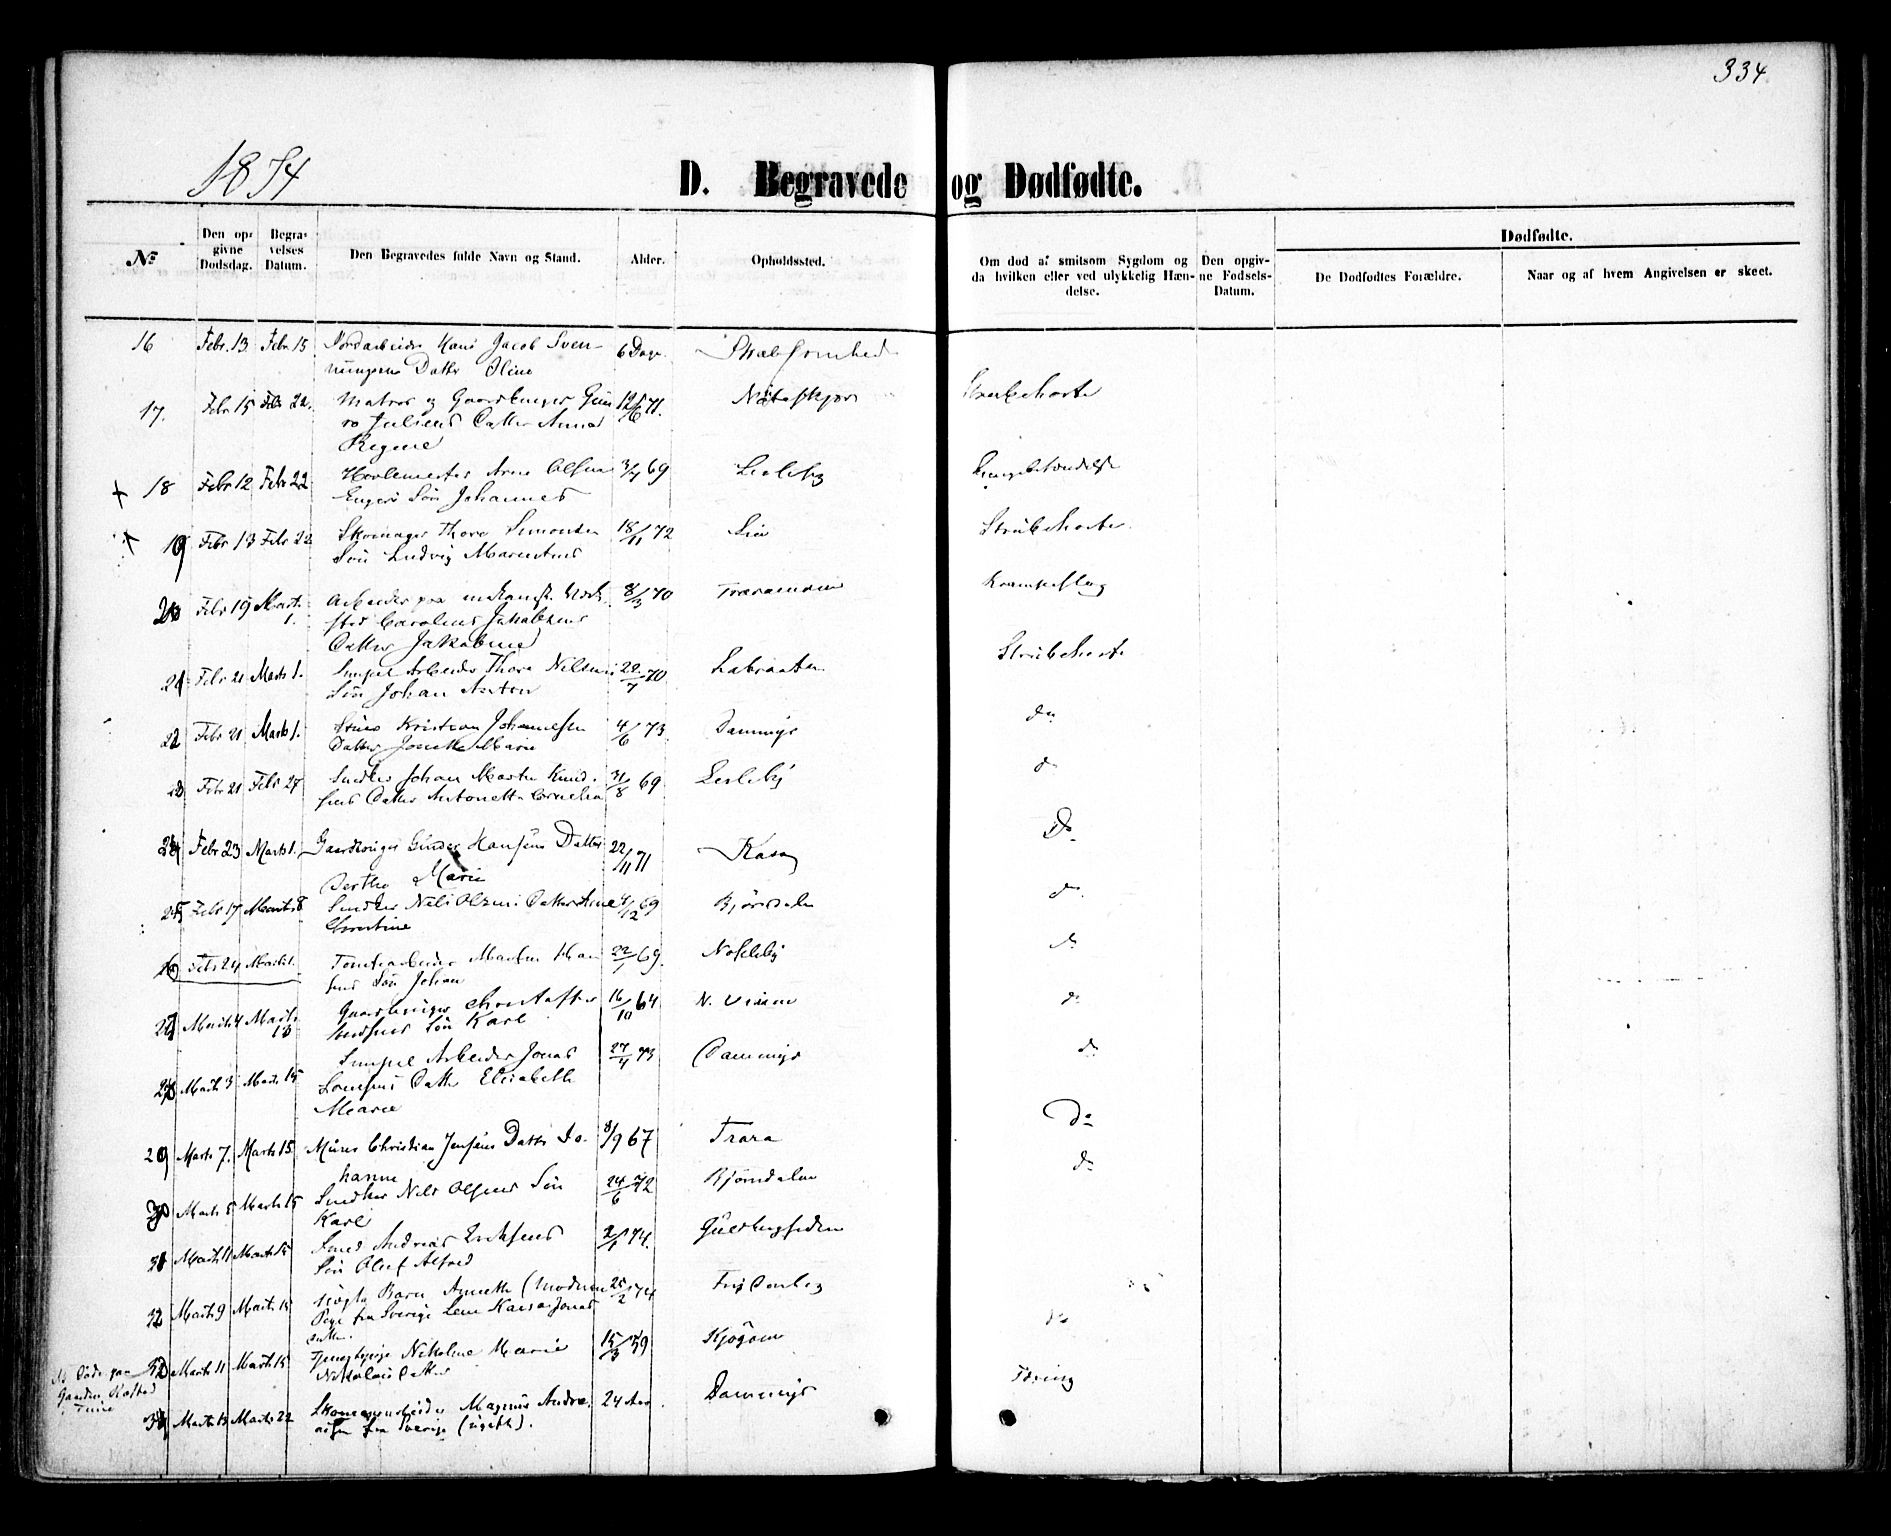 334
1874
D. Begravede og Dødfødte.
№
Den opgivne Dødsdag.
Begravelses Datum.
Den Begravedes fulde Navn og Stand.
Alder.
Opholdssted.
Om død af smitsom Sygdom og da hvilken eller ved ulykkelig Hændelse.
Den opgivne Fødsels-Datum.
Dødfødte.
De Dødfødtes Forældre.
Naar og af hvem Angivelsen er skeet.
16 Febr. 13 Febr. 15 Hans Jacob Sven- 6 Dage
Datter Oline
17. Febr 15 Febr 22. Matros og Gaardbruger 71.
Juliens Datter Anna Strubehoste
Regine
18 Febr 12 Febr 22 Arne Olsens 3/4 69 Lisleby
Søn Johannes
19 Febr 13 Febr 22 Skomager Thore Simonsen 18/11 72 Lien Strubehoste
Søn Ludvig Marentius
20 Febr 19 Marts 1. Arbeider paa mekanisk Værk- 8/3 70 Traramoen Krampeslag
sted Carolius Jakobsens
Datter Jakobine
21 Febr 21 Marts 1. Simpel Arbeider Thore Nilsens 22/7 70 Labraaten Strubehoste
Søn Johan Anton
22 Febr 21 Marts 1. Kristian Johannesen 4/6 73. Dammyr do
Datter Marie
Febr 21 Febr 27 Snedker Johan Martin Knud- 31/8 69 Lisleby do
sens Datter Antonette Cornelia
24 Febr 23 Marts 1. Gaardbruger Gunder Hansens Datter 22/11 71 Do
Berthe Marie
25 Febr 17 Marts 8 Snedker Nils Olsens Datter Anne 4/12 69 Bjørndalen do
Christine
26 Febr 24 Marts 1. Tomtearbeider Martin Han- 22/1 69. Nøkleby do
sens Søn Johan
27 Marts 4 Marts Gaardbruger 16/10 64 N. do
Søn Karl
28 Marts 3 Marts 15 Simpel Arbeider Jonas 27/4 73 Dammyr do
Datter Elisabeth
Marie
29 Marts 7. Marts 15 Murer Christian Jensens Datter Jo- 8/9 67 Trara Do
hanne
30 Marts 5 Marts 15 Snedker Nils Olsens Søn 24/6 72 Bjørndalen do
Karl
31 Marts 11 Marts 15 Smed Andreas Eriksens 2/1 74. Guldbergsiden
Søn Oluf Alfred
32 Marts 9 Marts 15 uægte Barn Annette (Moderen 25/2 74
Pige fra Sverige Lena Kaisa Jonas
datter.
Marts 11 Marts 15 Tjenestepige Nikoline Marie 15/3 59 do
Nikolais Datter
No Døde paa
Gaarden Rostad
i Tune
Marts 13 Marts 22 Magnus Andre- 24 Aar Dammyr Tæring
asen fra Sverige (ugift).